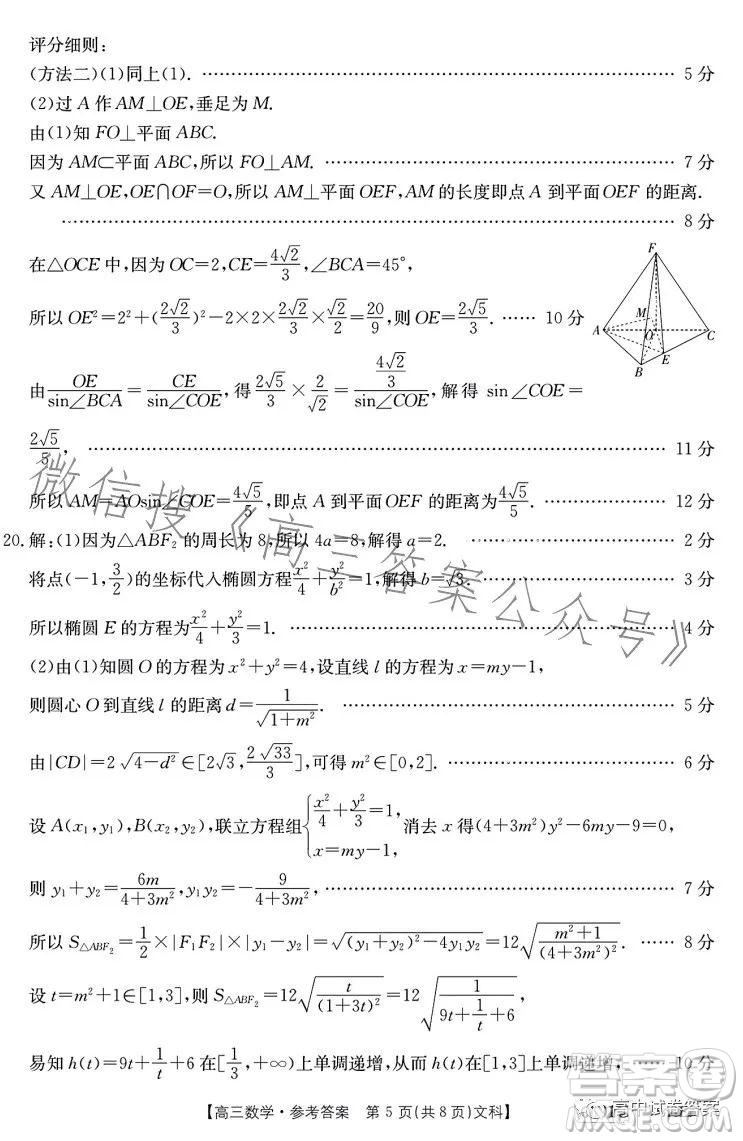 评分细则:
(方法二)(1)同上(1). …… 5 分
(2)过 A 作 AM⊥OE,垂足为 M.
由(1)知 FO⊥平面 ABC.
因为 AM⊂平面 ABC,所以 FO⊥AM. …… 7 分
又 AM⊥OE,OE∩OF=O,所以 AM⊥平面 OEF,AM 的长度即点 A 到平面 OEF 的距离.
…… 8 分
在△OCE 中,因为 OC=2,CE=\frac{4\sqrt{2}}{3},∠BCA=45°,
所以 OE²=2²+(\frac{2\sqrt{2}}{3})²-2×2×\frac{2\sqrt{2}}{3}×\frac{\sqrt{2}}{2}=\frac{20}{9},则 OE=\frac{2\sqrt{5}}{3}. …… 10 分
F
M
A
O
C
B
E
由\frac{OE}{sin∠BCA}=\frac{CE}{sin∠COE},得\frac{2\sqrt{5}}{3}×\frac{2}{\sqrt{2}}=\frac{\frac{4\sqrt{2}}{3}}{sin∠COE},解得 sin∠COE=
\frac{2\sqrt{5}}{5}, …… 11 分
所以 AM=AOsin∠COE=\frac{4\sqrt{5}}{5},即点 A 到平面 OEF 的距离为\frac{4\sqrt{5}}{5}. …… 12 分
20.解:(1)因为△ABF₂ 的周长为 8,所以 4a=8,解得 a=2. …… 2 分
将点(-1,\frac{3}{2})的坐标代入椭圆方程\frac{x²}{4}+\frac{y²}{b²}=1,解得 b=\sqrt{3}. …… 3 分
所以椭圆 E 的方程为\frac{x²}{4}+\frac{y²}{3}=1. …… 4 分
(2)由(1)知圆 O 的方程为 x²+y²=4,设直线 l 的方程为 x=my-1,
则圆心 O 到直线 l 的距离 d=\frac{1}{\sqrt{1+m²}}. …… 5 分
由|CD|=2\sqrt{4-d²}∈[2\sqrt{3},\frac{2\sqrt{33}}{3}],可得 m²∈[0,2]. …… 6 分
设 A(x₁,y₁),B(x₂,y₂),联立方程组{\frac{x²}{4}+\frac{y²}{3}=1, x=my-1,消去 x 得(4+3m²)y²-6my-9=0,
则 y₁+y₂=\frac{6m}{4+3m²},y₁y₂=-\frac{9}{4+3m²}, …… 7 分
所以 S△ABF₂=\frac{1}{2}×|F₁F₂|×|y₁-y₂|=\sqrt{(y₁+y₂)²-4y₁y₂}=12\sqrt{\frac{m²+1}{(4+3m²)²}}. …… 8 分
设 t=m²+1∈[1,3],则 S△ABF₂=12\sqrt{\frac{t}{(1+3t)²}}=12\sqrt{\frac{1}{9t+\frac{1}{t}+6}},
易知 h(t)=9t+\frac{1}{t}+6 在[\frac{1}{3},+∞)上单调递增,从而 h(t)在[1,3]上单调递增, …… 10 分
【高三数学·参考答案 第 5 页(共 8 页)文科】
微信搜《高三答案公众号》
高中试卷答案